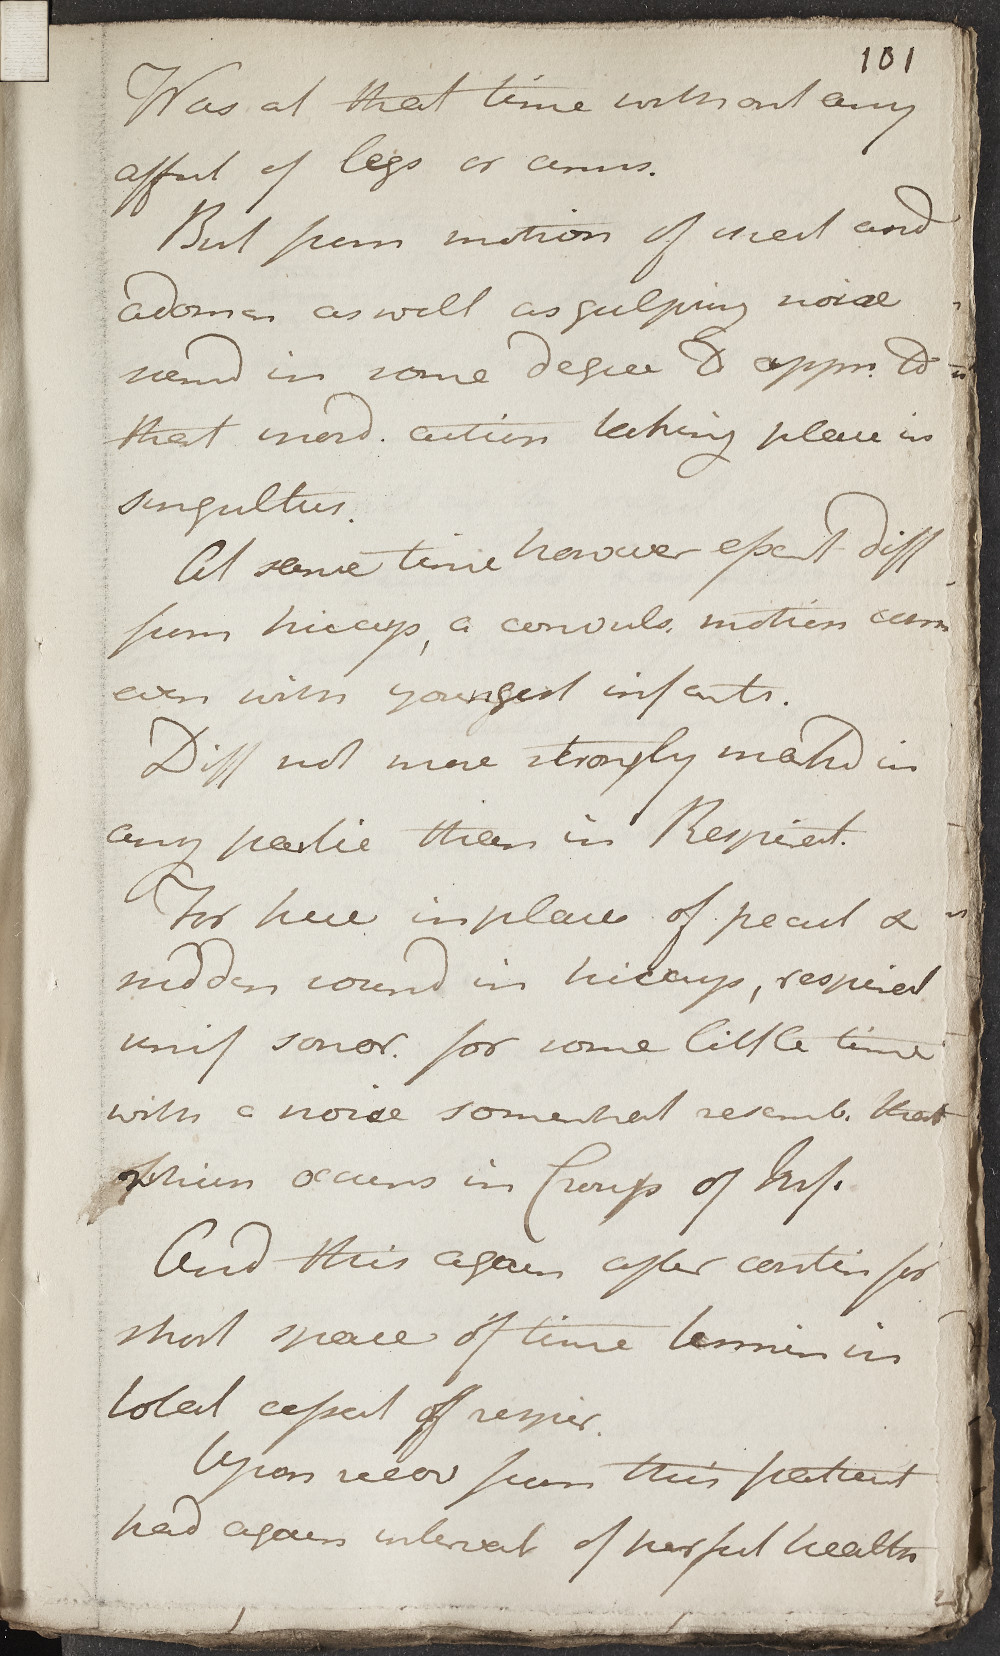 101
Was at that time without any
affect of legs or arms.
But from motion of chest and
abdomen as well as gulping noise
seemd in some degree to appr. to
that mord. action taking place in
singultus.
At same time however essent diff
from hiccup, a convuls. motion comm
even with youngest infants.
Diff not more strongly markd in
any partic than in Respirat.
For here in place of pecul &
sudden sound in hiccup, respirat
unif sonor. for some little time
with a noise somewhat resemb. that
which occurs in Croup of Inf.
And this again after contin for
short space of time termin in
total cessat of respir.
Upon recov from this patient
had again interval of perfect health